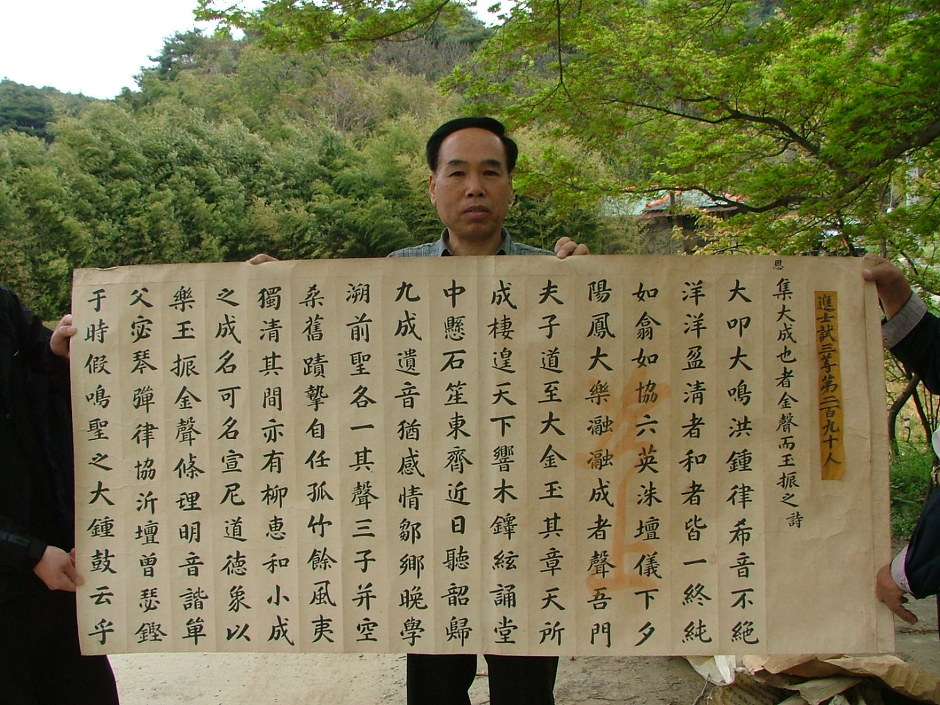 進士試三等第二百九十人
思
集大成也者金聲而玉振之詩
大叩大鳴洪鍾律希音不絶
洋洋盈淸者和者皆一終純
如翕如協六英洙壇儀下夕
陽鳳大樂瀜瀜成者聲吾門
夫子道至大金玉其章天所
成棲遑天下響木鐸絃誦堂
中懸石笙東齊近日聽韶歸
九成遺音猶感情鄒鄕晩學
溯前聖各一其聲三子并空
桑舊蹟摯自任孤竹餘風夷
獨淸其間亦有柳惠和小成
之成名可名宣尼道德象以
樂玉振金聲條理明音諧簞
父宓琴彈律協沂壇曾瑟鏗
于時假鳴聖之大鍾鼓云乎